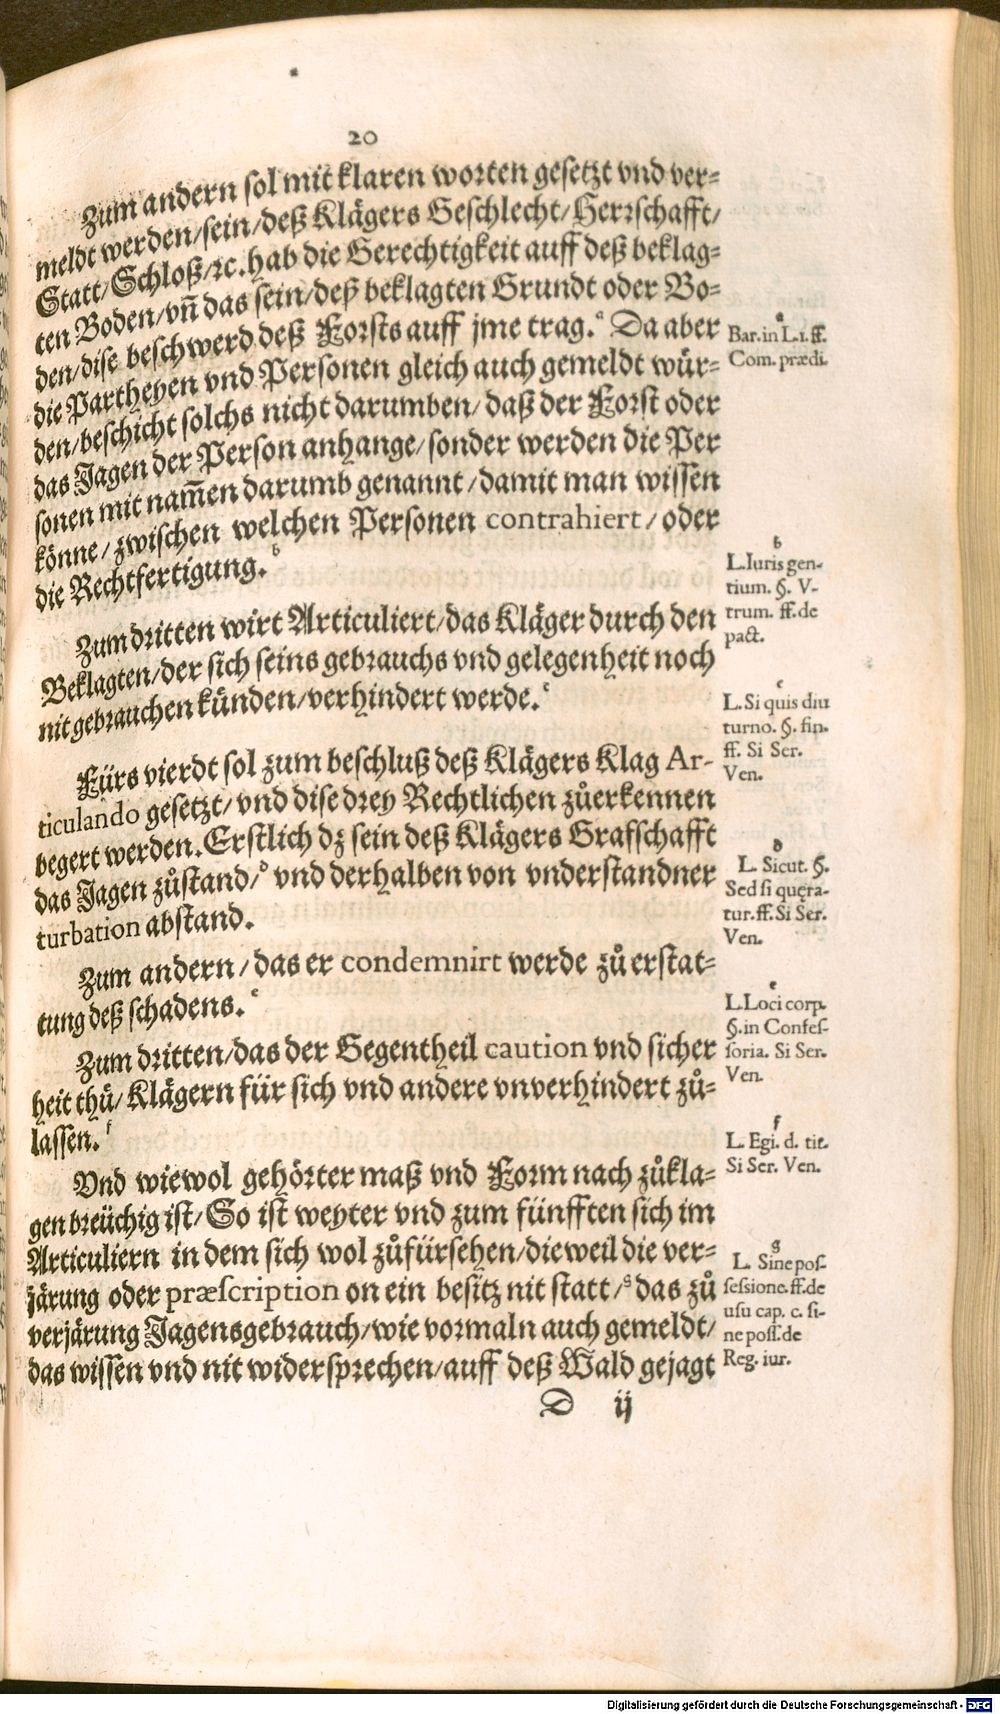 20
Zum andern sol mit klaren worten gesetzt vnd ver=
meldt werden/sein/deß Klägers Geschlecht/Herrschafft/
Statt/Schloß/ꝛc. hab die Gerechtigkeit auff deß beklag=
ten Boden/vñ das sein/deß beklagten Grundt oder Bo=
den/dise beschwerd deß Forsts auff jme trag.ᵃ Da aber
die Partheyen vnd Personen gleich auch gemeldt wür=
den/beschicht solchs nicht darumben/daß der Forst oder
das Jagen der Person anhange/sonder werden die Per
sonen mit nam̃en darumb genannt/damit man wissen
könne/zwischen welchen Personen contrahiert/oder
die Rechtfertigung.ᵇ
Zum dritten wirt Articuliert/das Kläger durch den
Beklagten/der sich seins gebrauchs vnd gelegenheit noch
nit gebrauchen künden/verhindert werde.ᶜ
Fürs vierdt sol zum beschluß deß Klägers Klag Ar-
ticulando gesetzt/vnd dise drey Rechtlichen zůerkennen
begert werden. Erstlich dz sein deß Klägers Grafschafft
das Jagen zůstand/ᵈ vnd derhalben von vnderstandner
turbation abstand.
Zum andern/das er condemnirt werde zů erstat=
tung deß schadens.ᵉ
Zum dritten/das der Gegentheil caution vnd sicher
heit thů/Klägern für sich vnd andere vnverhindert zů=
lassen.ᶠ
Vnd wiewol gehörter maß vnd Form nach zůkla=
gen breüchig ist/So ist weyter vnd zum fünfften sich im
Articuliern in dem sich wol zůfürsehen/dieweil die ver=
järung oder præscription on ein besitz nit statt/ᵍ das zů
verjärung Jagensgebrauch/wie vormaln auch gemeldt/
das wissen vnd nit widersprechen/auff deß Wald gejagt
D ij
a
Bar. in L.1. ff.
Com. prædi.
b
L. Iuris gen-
tium. §. V-
trum. ff. de
pact.
c
L. Si quis diu
turno. §. fin.
ff. Si Ser.
Ven.
d
L. Sicut. §.
Sed si quęra-
tur. ff. Si Ser.
Ven.
e
L. Loci corp.
§. in Confes-
soria. Si Ser.
Ven.
f
L. Egi. d. tit.
Si Ser. Ven.
g
L. Sine pos-
sessione. ff. de
usu cap. c. si-
ne poss. de
Reg. iur.
Digitalisierung gefördert durch die Deutsche Forschungsgemeinschaft - DFG